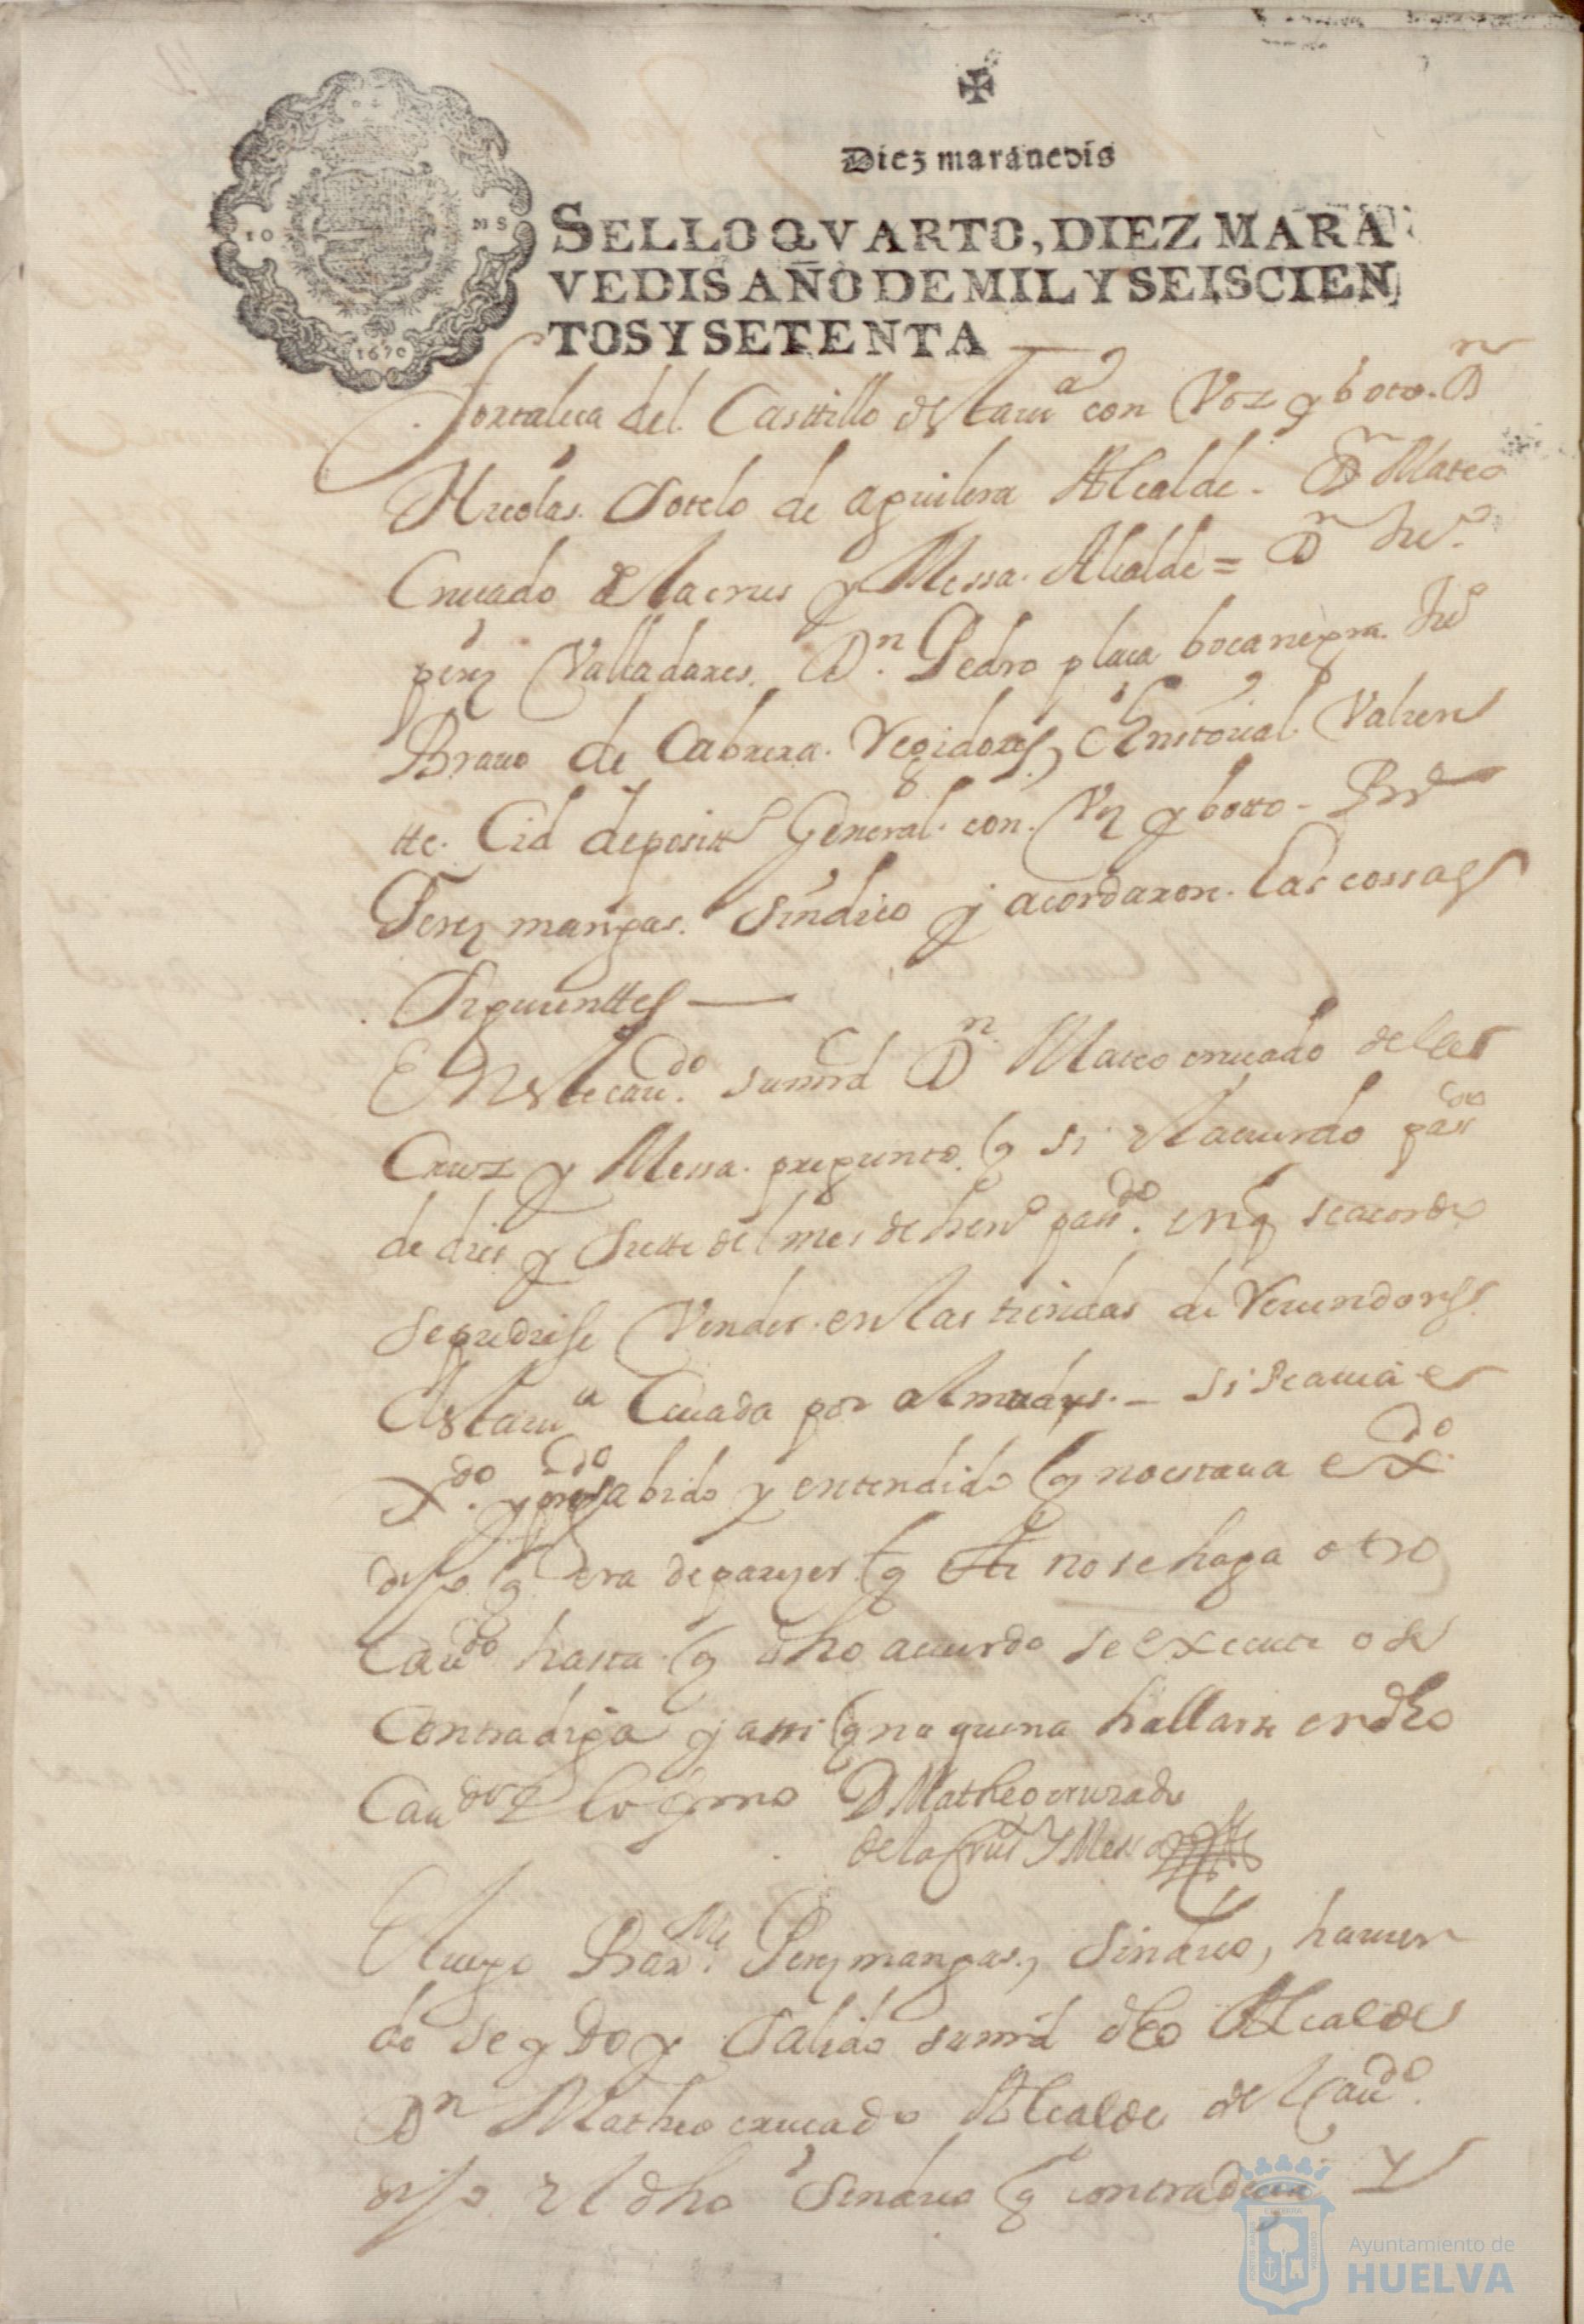 Diez maravedis
SELLO QVARTO, DIEZ MARA
VEDIS AÑO DE MIL Y SEISCIEN
TOS Y SETENTA
10 MS
1670
fortaleca del Casttillo destauª con Voz y boto. Dn
Nicolas Sotelo de aguilera Alcalde. Dn Mateo
Crucado de la crus y Messa. Alcalde = Dn Juº
perez Valladares. Dn. Pedro plaça bocanegra. Juº
Brauo de Cabrera. Regidores, Cristoual Valien
tte. Cid deposittº General. con. Vz y botto -
Perez mangas. Sindico y acordaron. las cossas
Siguienttes —
En este cauᵈᵒ. sumrd Dn Mateo crucado de la
Cruz y Messa. pregunto. q si el acuerdo
de dies y Siette del mes de henº pasᵈᵒ. en q se acordo
se pudiese Vender en las tiendas de Vecendores
destauª Ceuada por almudes. - si se auia e
xᵈᵒ. y sabido y entendido q no estaua exᵈᵒ.
dijo q era de parezer q no se haga otro
Cauᵈᵒ hasta q dho acuerdo se execute o se
Contradiga y assi q no queria hallarse en dho
Cauᵈᵒ y lo firmo D Matheo cruzado
de la Crus Y Messa
E luego Barme. Perez mangas, Sindico, hauien
do se ydo y Salido sumrd dho Alcalde
Dn Matheo crucado Alcalde del Cauᵈᵒ.
dijo el dho Sindico q contradecia Y
Ayuntamiento de
HUELVA